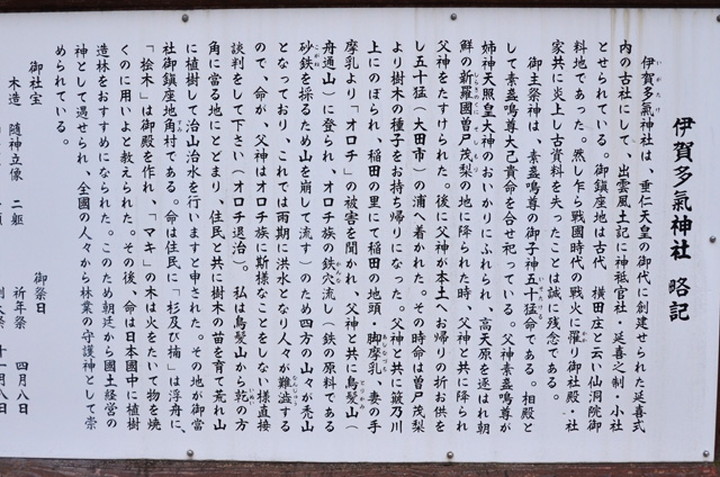 伊賀多氣神社 略記
伊賀多氣神社は、垂仁天皇の御代に創建せられた延喜式
内の古社にして、出雲風土記に神祗官社・延喜之制・小社
とせられている。御鎮座地は古代 横田庄と云い仙洞院御
料地であった。然し乍ら戰國時代の戰火に罹り御社殿・社
家共に炎上し古資料を失ったことは誠に残念である。
御主祭神は、素盞鳴尊の御子神五十猛命である。相殿と
して素盞鳴尊大己貴命を合せ祀っている。父神素盞鳴尊が
姉神天照皇大神のおいかりにふれられ、高天原を逐はれ朝
鮮の新羅國曽尸茂梨の地に降られた時、父神と共に降られ
父神をたすけられた。後に父神が本土へお帰りの折お供を
し五十猛（大田市）の浦へ着かれた。その時命は曽尸茂梨
より樹木の種子をお持ち帰りになった。父神と共に簸乃川
上にのぼられ、稲田の里にて稲田の地頭・脚摩乳、妻の手
摩乳より「オロチ」の被害を聞かれ、父神と共に鳥髪山（
舟通山）に登られ、オロチ族の鉄穴流し（鉄の原料である
砂鉄を採るため山を崩して流す）のため四方の山々が禿山
となっており、これでは雨期に洪水となり人々が難澁する
ので、命が、父神はオロチ族に斯様なことをしない様直接
談判をして下さい（オロチ退治）。私は鳥髪山から乾の方
角に當る地にとどまり、住民と共に樹木の苗を育て荒れ山
に植樹して治山治水を行いますと申された。その地が御當
社御鎮座地角村である。命は住民に「杉及び楠」は浮舟に、
「桧木」は御殿を作れ、「マキ」の木は火をたいて物を焼
くのに用いよと教えられた。その後、命は日本國中に植樹
造林をおすすめになられた。このため朝廷から國土経営の
神として遇せられ、全國の人々から林業の守護神として崇
められている。
御社宝
木造 随神立像 二躯
御祭日
祈年祭 四月八日
十一月八日